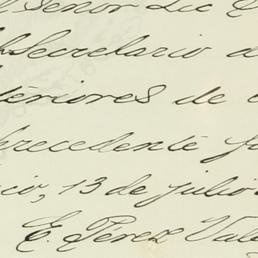 l Señor Lic
Secretario d
teriores de
precedente f
ico, 13 de julio
E. Pérez Vale